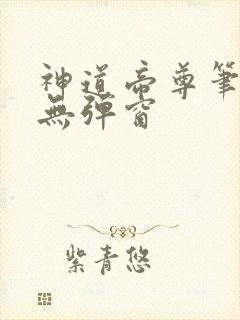 神道帝尊筆
無彈窗
紫青悠